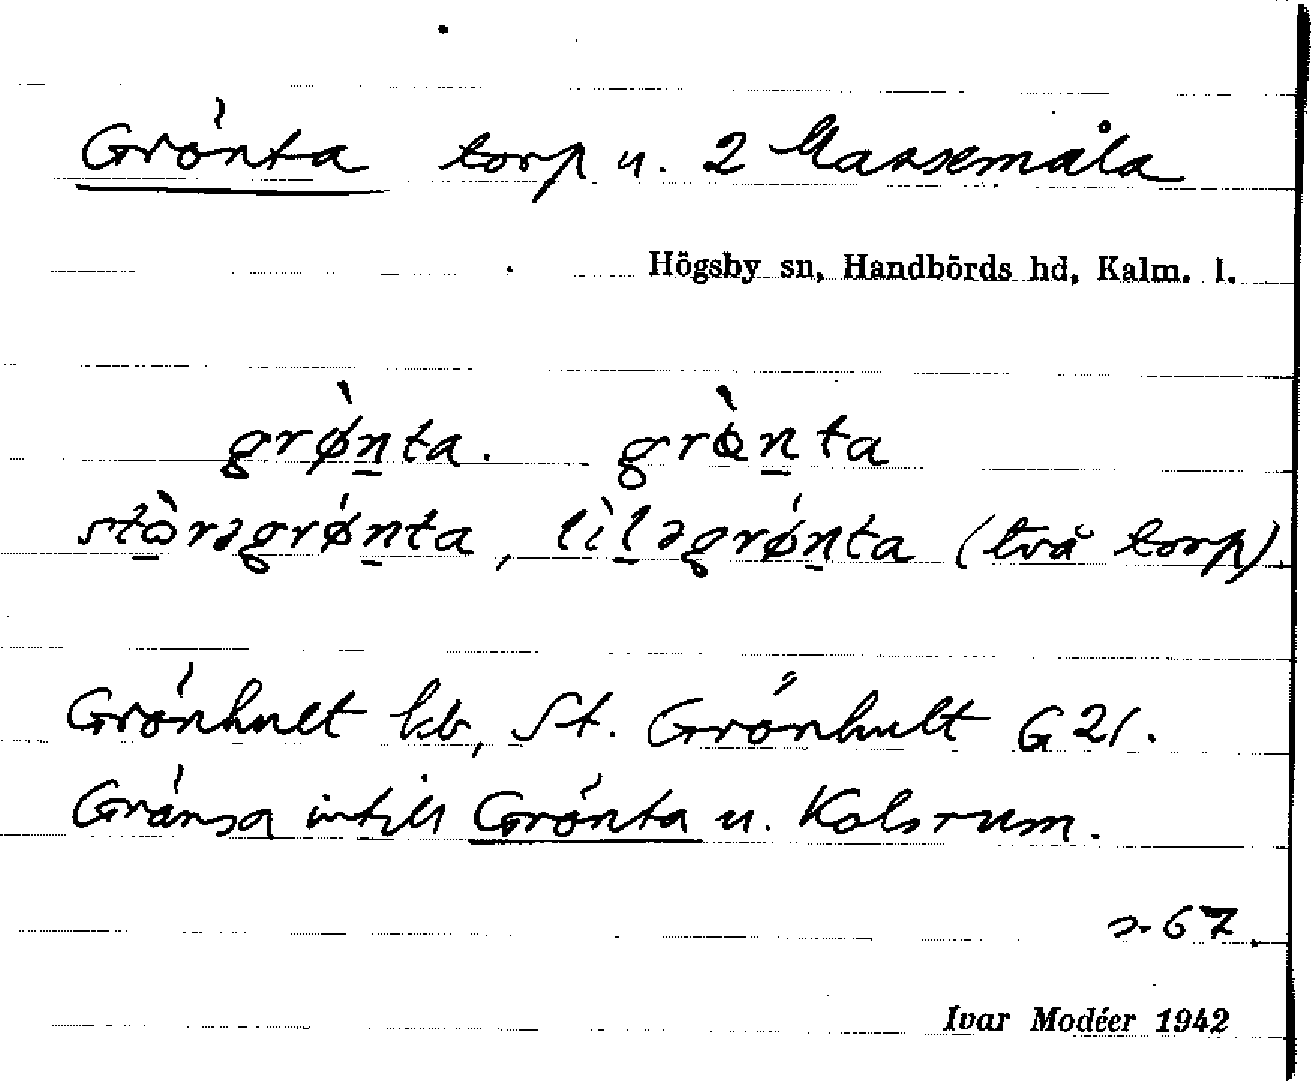 Grönta torp u. 2 Massemåla
Högsby sn, Handbörds hd, Kalm. l.
grø̀n̲ta. grò̀n̲ta
stò̲rəgrǿn̲ta, lìl̲əgrǿn̲ta (två torp).
Grönhult kb, St. Grönhult G 21.
Gränsa intill Grönta u. Kolsrum.
s. 67.
Ivar Modéer 1942